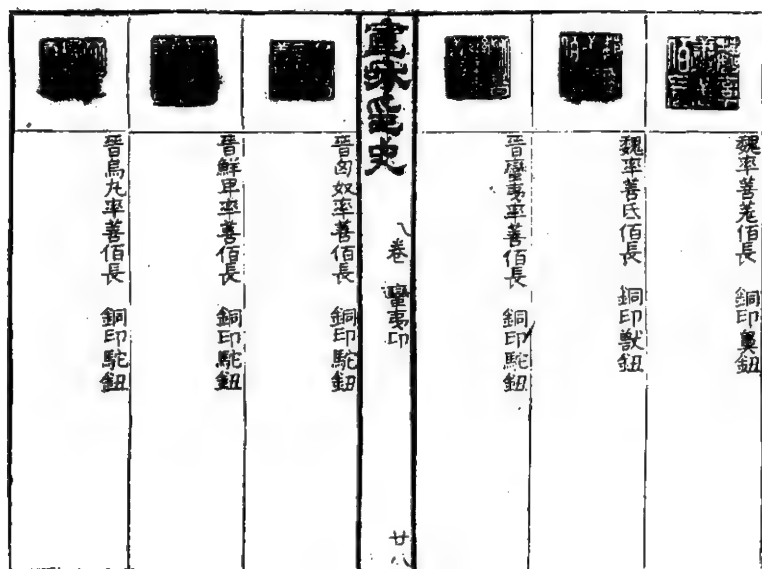 魏率善羌佰長　銅印鼻鈕
魏率善氐佰長　銅印獸鈕
晉蠻夷率善佰長　銅印駝鈕
宣和印史　八卷　蠻夷印　廿八
晉匈奴率善佰長　銅印駝鈕
晉鮮卑率善佰長　銅印駝鈕
晉烏丸率善佰長　銅印駝鈕